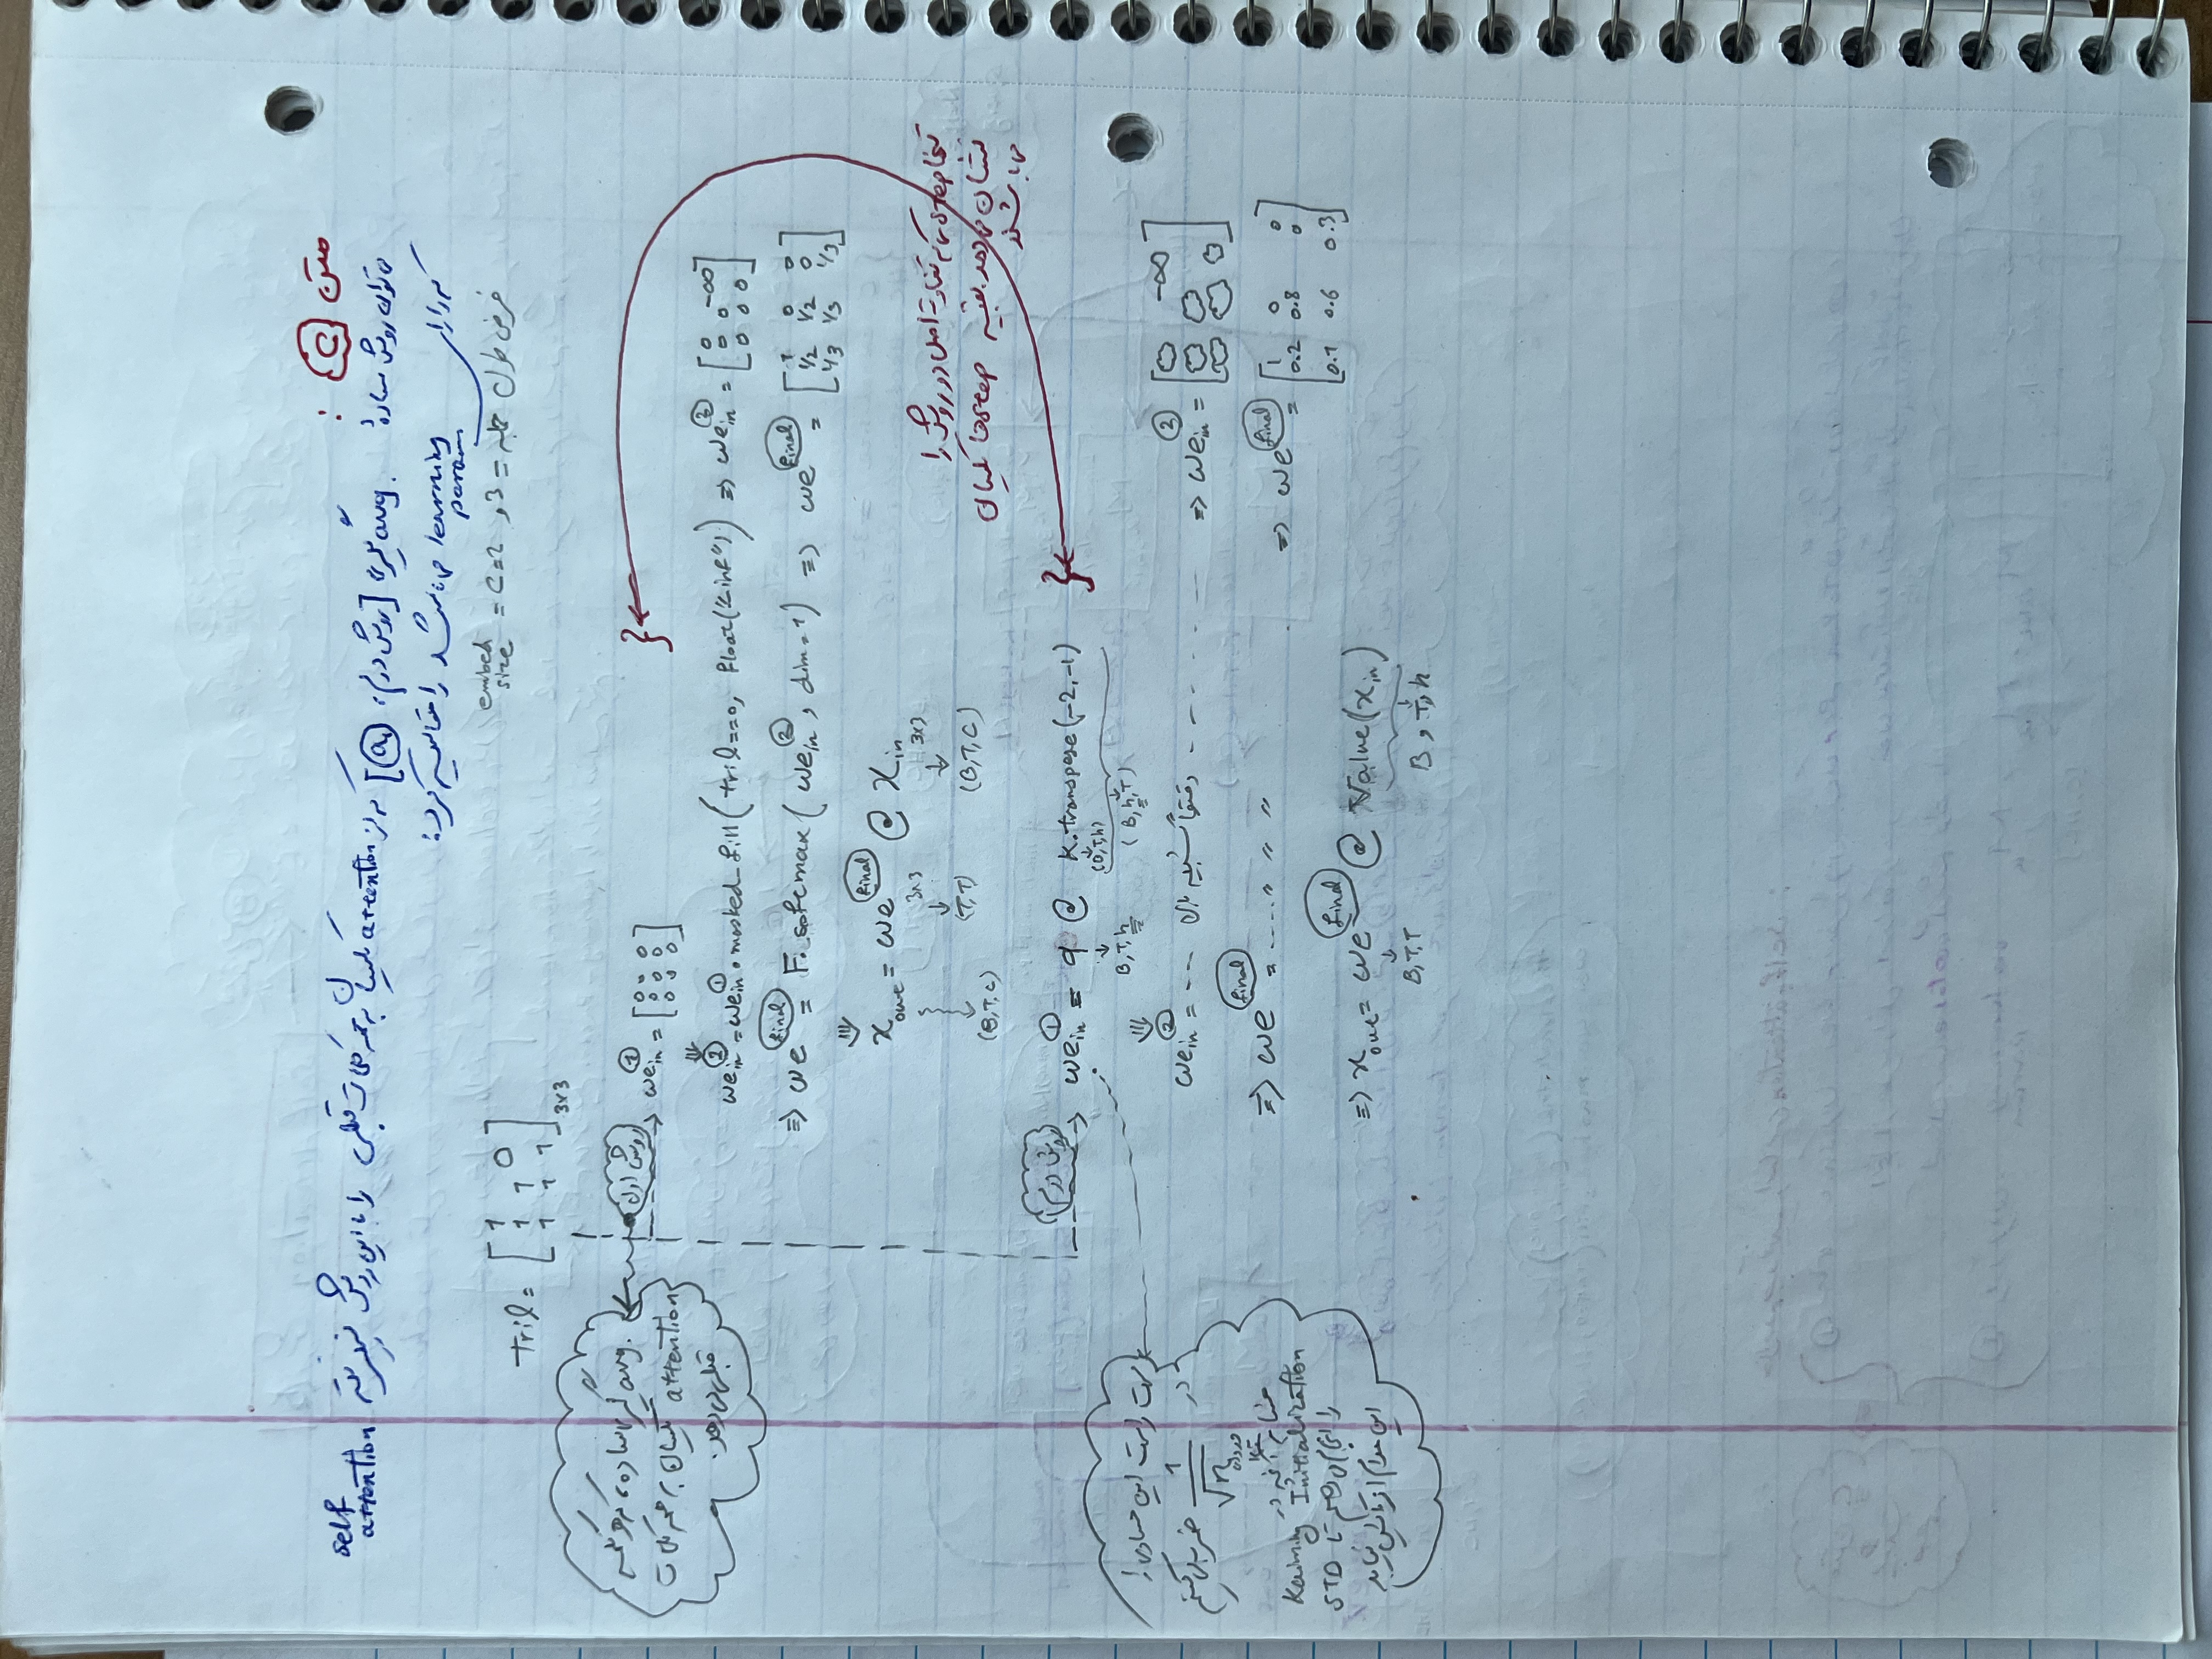 متن C :
می توان روش ساده avg. گیری [روش دوم، a] که از attention یکسان به همه کلمات قبلی را با این روش پیشرفته self attention
که دارای learning param می باشد را مقایسه کرد:
فرض طول جمله = 3 , embed size = C = 2
Tril = [1 0 / 1 1 / 1 1 1] 3x3
روش اول
avg. گیری ساده، که هر کلمه
attention یکسان به همه کلمات
قبلی می دهد.
wei_n ① = [0 0 0 / 0 0 0 / 0 0 0]
wei_n ② = wei_n ① . masked_fill(tril==0, float("-inf")) ⇒ wei_n ② = [0 -∞ / 0 0 / 0 0 0]
⇒ we final = F. softmax(wei_n ②, dim=1) ⇒ we final = [1 0 0 / 1/2 1/2 0 / 1/3 1/3 1/3]
x out = we final @ x in
3x3 3x3
(B,T,C) (T,T) (B,T,C)
تنها step ی که تفاوت اصلی دو روش را
نشان می دهد. بقیه step ها یکسان
می باشند
روش دوم
wei_n ① = q @ K.transpose(-2,-1)
B,T,h (B,T,h) (B,h,T)
سمت راست این مساوی را
در 1/√n ضرب می کنیم
مشابه آنچه در
Kaiming Initialization
را انجام می دهیم تا STD
این مدام افزایش نیابد
wei_n ② = --- دقیقا شبیه بالا - - - - - - ⇒ wei_n ② = [ -∞ ]
⇒ we final = ..... " " " ⇒ we final = [1 0 0 / 0.2 0.8 0 / 0.1 0.6 0.3]
⇒ x out = we final @ Value(x in)
B,T,T B,T,h